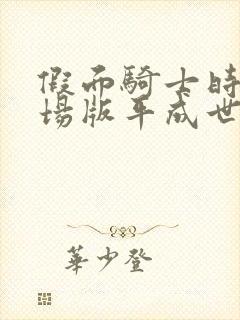 假面騎士時
場版平成世
華少登